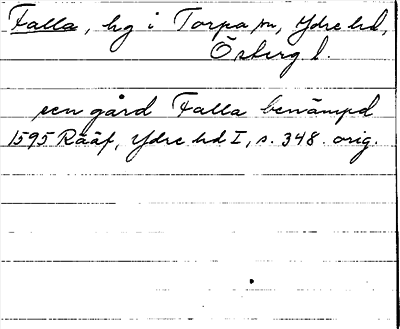 Falla, hg i Torpa sn, Ydre hd,
Österg l.
en gård Falla benämpd
1595 Rääf, Ydre hd I, s. 348. orig.